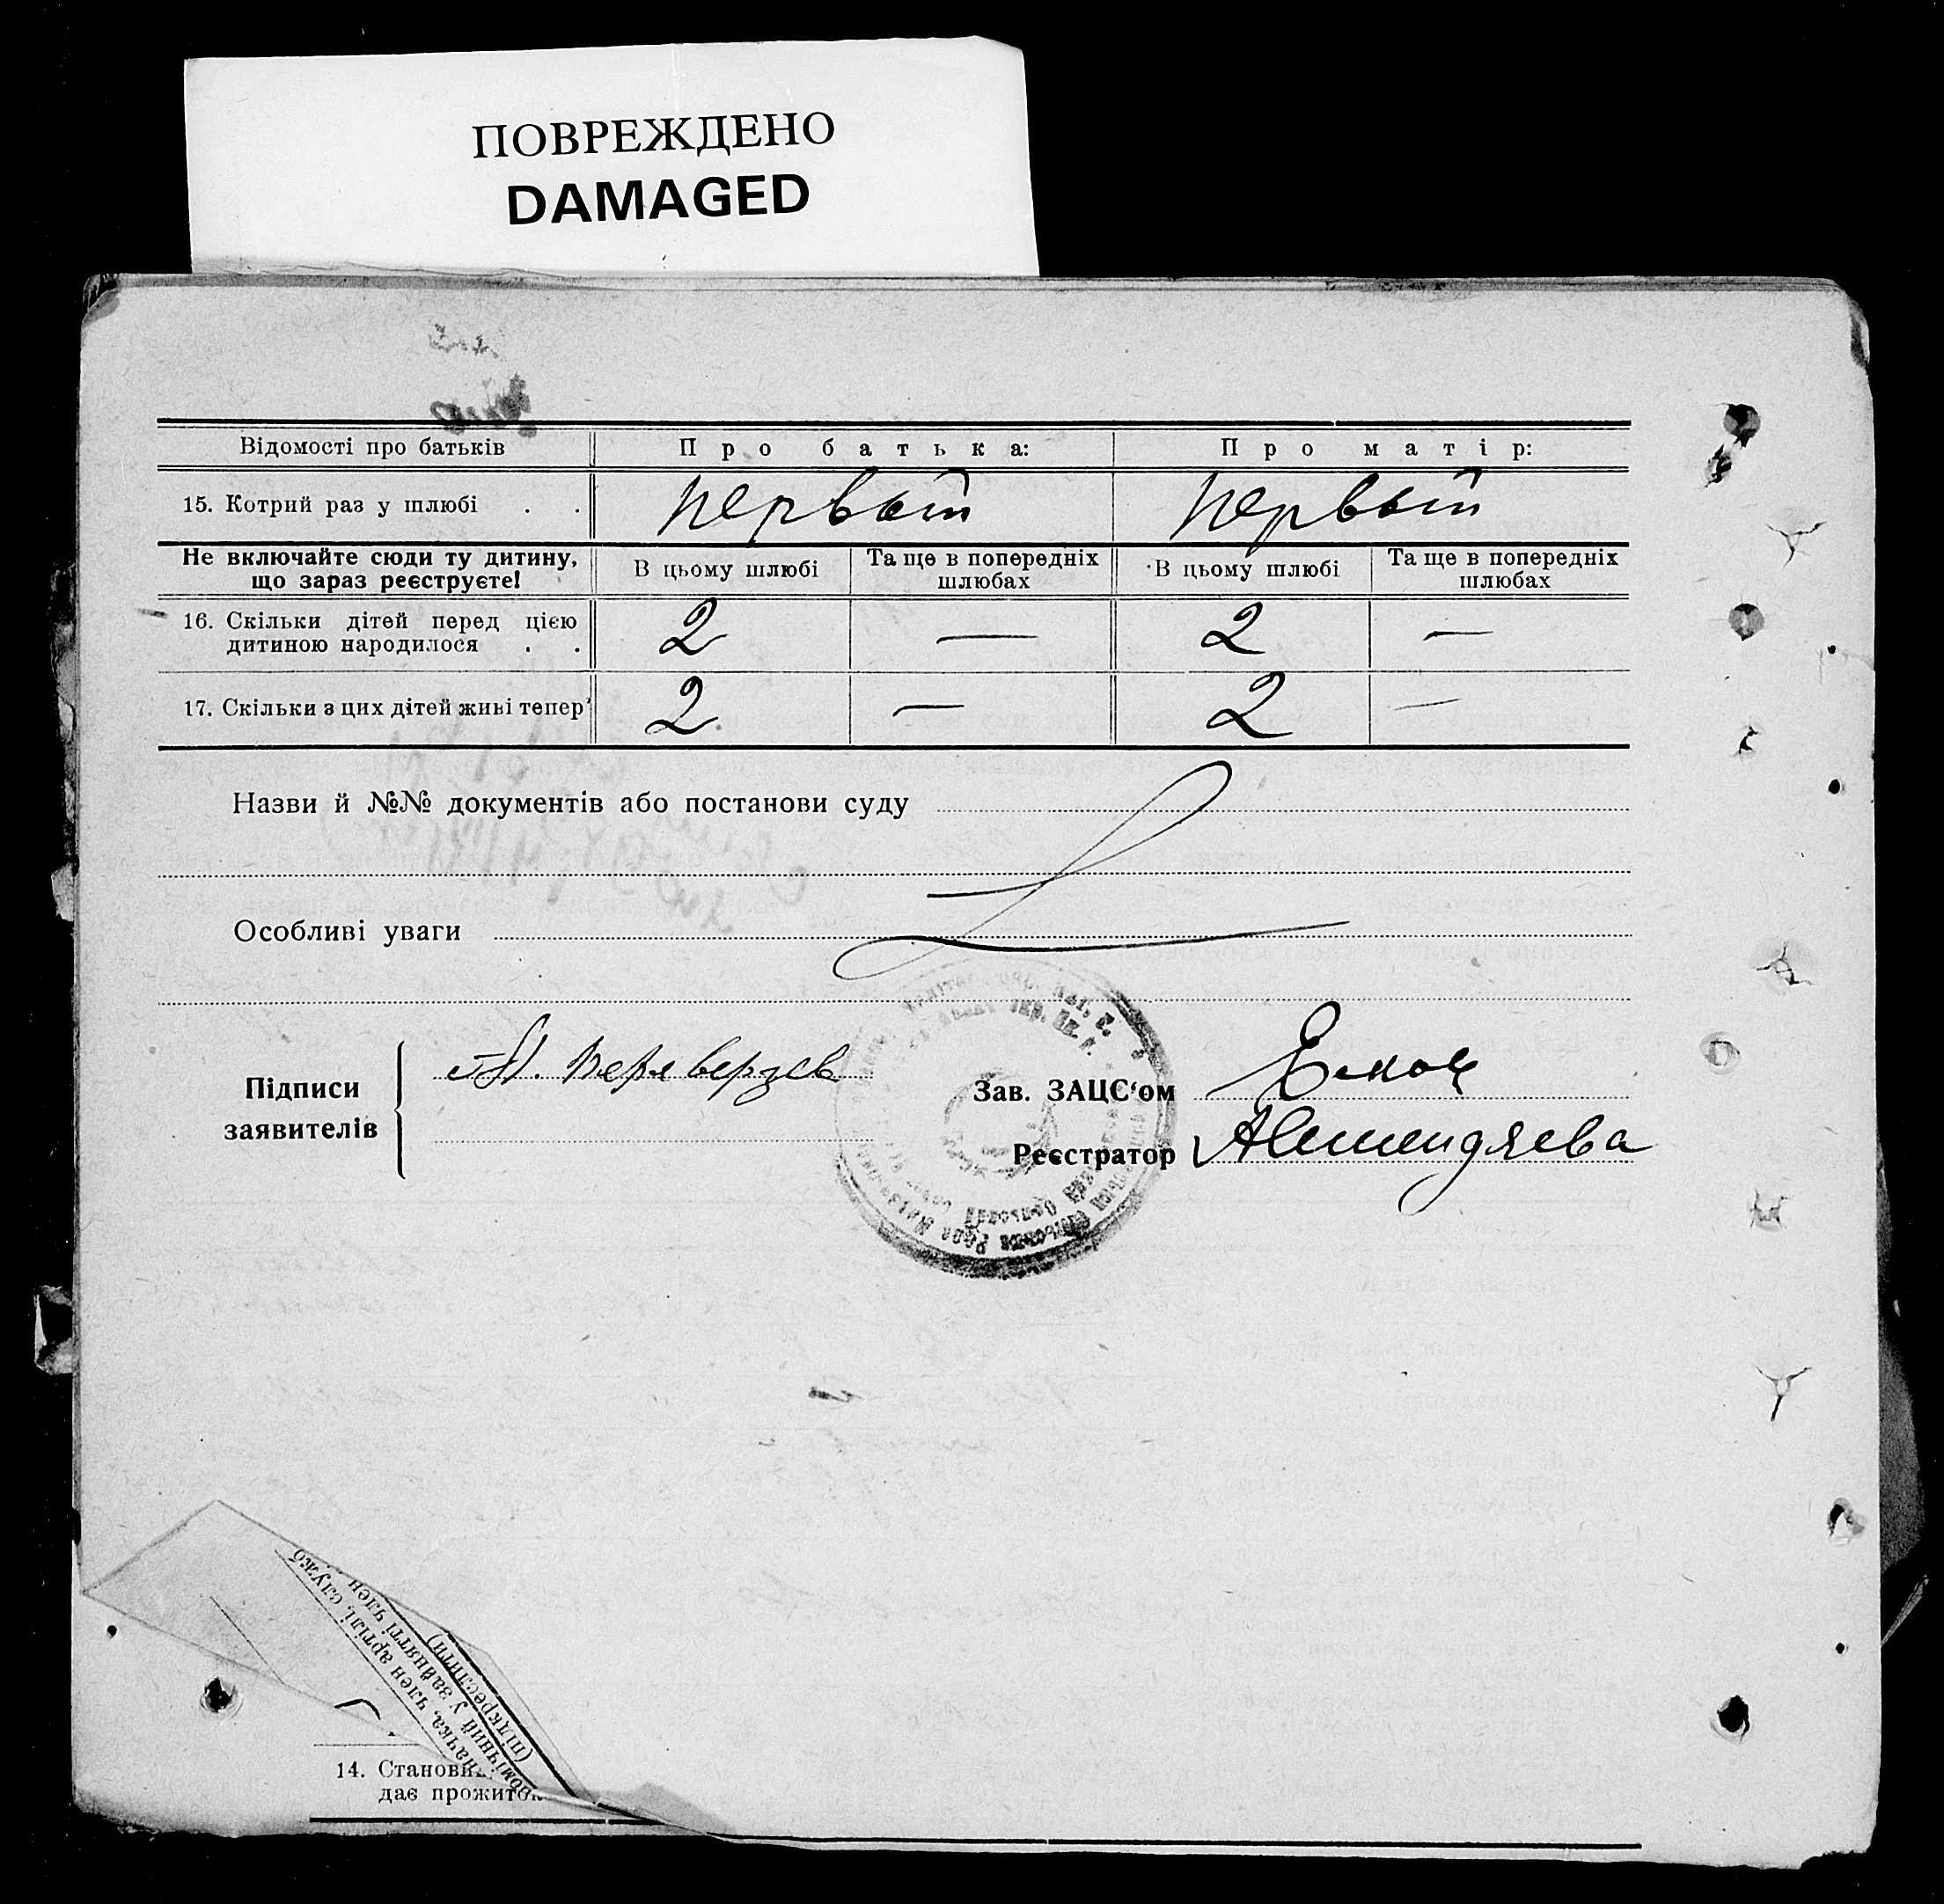 ПОВРЕЖДЕНО
DAMAGED
Відомості про батьків Про батька: Про матір:
15. Котрий раз у шлюбі . . первый первый
Не включайте сюди ту дитину, що зараз реєструєте! В цьому шлюбі Та ще в попередніх шлюбах В цьому шлюбі Та ще в попередніх шлюбах
16. Скільки дітей перед цією
дитиною народилося . . 2 — 2 —
17. Скільки з цих дітей живі тепер' 2 — 2 —
Назви й №№ документів або постанови суду
Особливі уваги
Підписи
заявителів
Зав. ЗАЦС‘ом
Реєстратор
(підкреслити)
у зайнятті член
начка, член артілі, служб
14. Станови
дає прожиток